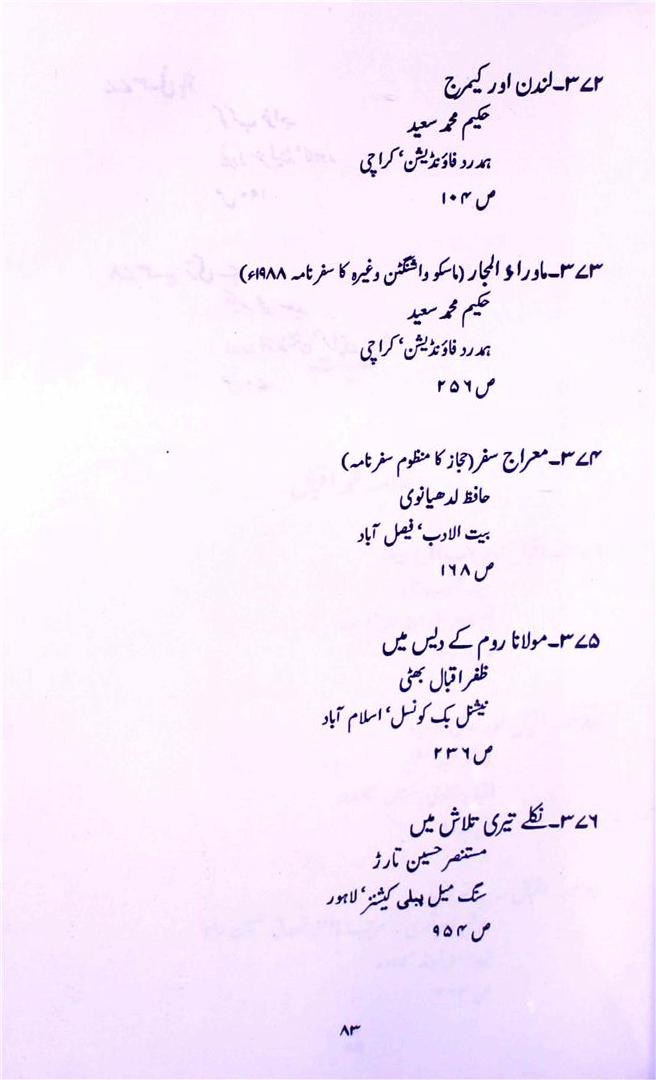 ۳۷۲۔لندن اور کیمرج
حکیم محمد سعید
ہمدرد فاؤنڈیشن، کراچی
ص ۱۰۴
۳۷۳۔ماوراءُ البحار (ماسکو واشنگٹن وغیرہ کا سفر نامہ ۱۹۸۸ء)
حکیم محمد سعید
ہمدرد فاؤنڈیشن، کراچی
ص ۲۵۶
۳۷۴۔معراج سفر (حجاز کا منظوم سفر نامہ)
حافظ لدھیانوی
بیت الادب، فیصل آباد
ص ۱۶۸
۳۷۵۔مولانا روم کے دیس میں
ظفر اقبال بھٹی
نیشنل بک کونسل، اسلام آباد
ص ۲۳۶
۳۷۶۔نکلے تیری تلاش میں
مستنصر حسین تارڑ
سنگ میل پبلی کیشنز، لاہور
ص ۹۵۴
۸۳